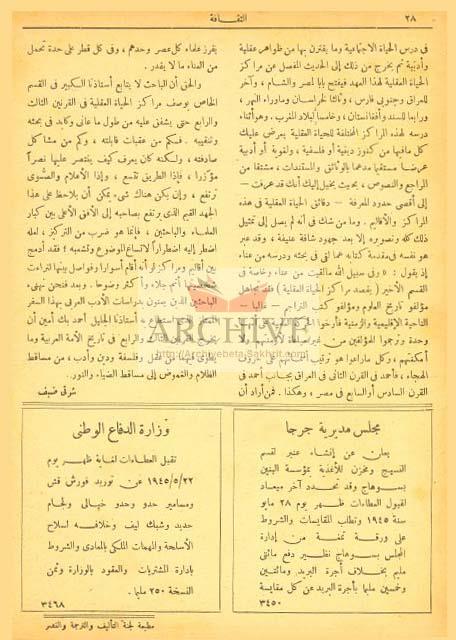 ٢٨
الثقافة
فى درس الحياة الاجتماعية وما يقترن بها من ظواهر عقلية
وأدبية ثم يخرج من ذلك إلى الحديث المفصل عن مراكز
الحياة العقلية لهذا العهد فيفتح بابا لمصر والشام ، وآخر
للعراق وجنوبى فارس ، وثالثا لخراسان وما وراء النهر ،
ورابعا للسند وأفغانستان ، وخامسا لبلاد المغرب . وهو أثناء
درسه لهذه المراكز المختلفة للحياة العقلية يعرض عليك
كل ما فيها من كنوز دينية أو فلسفية ، ولغوية أو أدبية
عرضا مستفيضا مدعما بالوثائق والمستندات ، مشتقا من
المراجع والنصوص ، بحيث يخيل إليك أنك قد عرفت —
إلى أقصى حدود المعرفة — دقائق الحياة العقلية فى هذه
المراكز والأقاليم . وما من شك فى أنه لم يصل إلى تمثيل
ذلك كله وتصويره إلا بعد جهود شاقة عنيفة ، وقد عبر
هو نفسه فى مقدمة كتابه عما لقى فى بحثه ودرسه من عناء
إذ يقول : « وفى سبيل الله ما لقيت من عناء وخاصة فى
القسم الأخير ( يقصد مراكز الحياة العقلية )
مؤلفو تاريخ العلوم ومؤلفو كتب التراجم — غالبا —
الناحية الإقليمية والزمنية فأرخوا
وحدة وترجموا المؤلفين من غير
أمكنتهم ، وكل ما راعوا هو ترتيب أسمائهم على حروف
الهجاء ، فأحمد فى القرن الثانى فى العراق بجانب أحمد فى
القرن السادس أو السابع فى مصر ، وهكذا . فمن أراد أن
يفرز علماء كل عصر وحدهم ، وفى كل قطر على حدة تحمل
من العناء ما لا يقدر .
والحق أن الباحث لا يتابع أستاذنا الكبير فى القسم
الخاص بوصف مراكز الحياة العقلية فى القرنين الثالث
والرابع حتى يشفق عليه من طول ما عانى وكابد فى بحثه
وتنقيبه . فكم من عقبات قابلته ، وكم من مشاكل
صادفته ، ولكنه كان يعرف كيف ينتصر عليها نصراً
مؤزراً ، فإذا الطريق تتسع ، وإذا الأعلام والصُّوى
ترتفع ، وإن يكن هناك شىء يمكن أن يلاحظ على هذا
الجهد القيم الذى يرتفع بصاحبه إلى الأفق الأعلى بين كبار
العلماء والباحثين ، فإنما هو ضرب من التركيز ، لعله
اضطر إليه اضطراراً لاتساع الموضوع وتشعبه ؛ فقد أدمج
بين أقاليم ومراكز لو أنه أقام أسواراً وفواصل بينها لتراءت
أتم جلاء وأكثر وضوحا . وبعد فنحن نهنىء
الباحثين الذين يعنون بدراسات الأدب العربى بهذا السفر
أستاذنا الجليل أحمد بك أمين أن
الثالث والرابع فى تاريخ الأمة العربية وما
من عقل وفلسفة ودين وأدب ، من مساقط
الظلام والغموض إلى مساقط الضياء والنور ..
شوقى ضيف
ARCHIVE
http://Archivebeta.Sakhrit.com
مجلس مديرية جرجا
يعلن عن إنشاء عنبر لقسم
النسيج ومخزن للأغذية بمؤسسة البنين
بسوهاج وقد تحدد آخر ميعاد
لقبول العطاءات ظهر يوم ٢٨ مايو
سنة ١٩٤٥ وتطلب المقايسات والشروط
على ورقة تمغة من إدارة
المجلس بسوهاج نظير دفع مائتى
مليم بخلاف أجرة البريد ومائتين
وخمسين مليما بأجرة البريد عن كل مقايسة
٣٤٥٠
وزارة الدفاع الوطنى
تقبل العطاءات لغاية ظهر يوم
١٩٤٥/٥/٢٢ عن توريد فورش قش
ومسامير حدو وحدو خيالى ولجام
حديد وشبك ليف وخلافه لسلاح
الأسلحة والمهمات الملكى بالمعادى والشروط
بإدارة المشتريات والعقود بالوزارة وثمن
النسخة ٢٥٠ مليما .
٣٤٦٨
مطبعة لجنة التأليف والترجمة والنشر